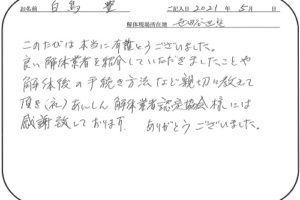 お名前 白鳥 豊 ご記入日 2021年 5月 日
解体現場所在地 世田谷区
このたびは本当に有難とうございました。
良い解体業者を紹介していただきましたことや
解体後の手続き方法など親切に教えて
頂き(社)あんしん解体業者認定協会様には
感謝致しております ありがとうございました。